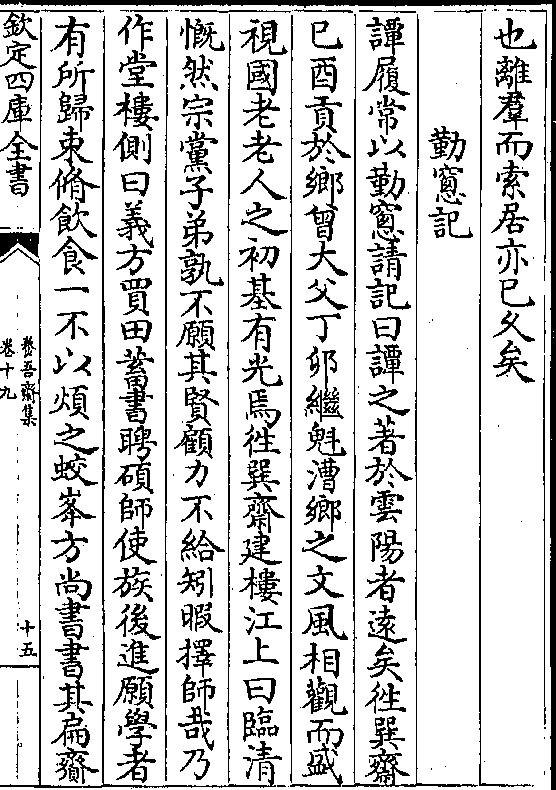 也離羣而索居亦已乆矣
勤窻記
譚履常以勤窻請記曰譚之著於雲陽者遠矣徃巽齋
已酉貢於鄉曾大父丁夘繼魁漕鄉之文風相觀而盛
視國老老人之初基有光焉徃巽齋建樓江上曰臨清
慨然宗黨子弟孰不願其賢顧力不給矧暇擇師哉乃
作堂樓側曰義方買田蓄書聘碩師使族後進願學者
有所歸束脩飲食一不以煩之蛟峯方尚書書其扁齋
欽定四庫全書
養吾齋集
卷十九
十五